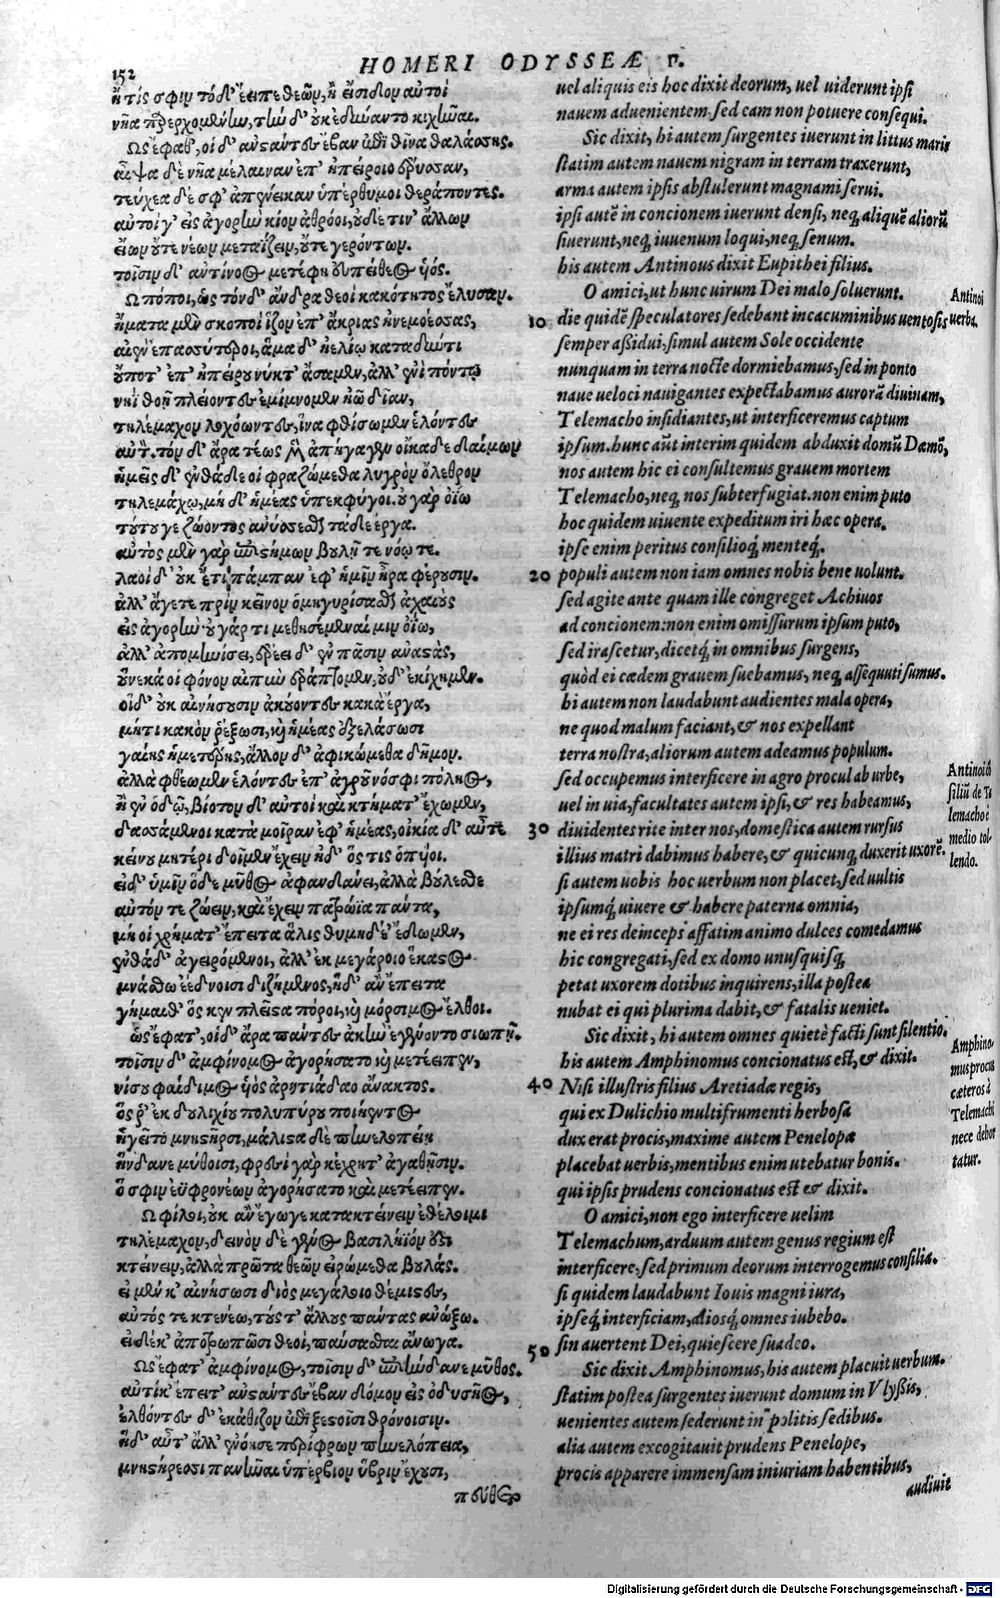 152
HOMERI ODYSSEÆ π.
ἤ τίς σφιν τόδ' ἔειπε θεῶν, ἢ εἴσιδον αὐτοὶ
νῆα παρερχομένην, τὴν δ' οὐκ ἐδύναντο κιχῆναι.
Ὣς ἔφαθ', οἱ δ' ἀνστάντες ἔβαν ἐπὶ θῖνα θαλάσσης.
αἶψα δὲ νῆα μέλαιναν ἐπ' ἠπείροιο ἔρυσαν,
τεύχεα δέ σφ' ἀπένεικαν ὑπέρθυμοι θεράποντες.
αὐτοὶ γ' εἰς ἀγορὴν κίον ἀθρόοι, οὐδέ τιν' ἄλλων
εἴων οὔτε νέων μεταΐζειν, οὔτε γερόντων.
τοῖσιν δ' Ἀντίνοος μετέφη Εὐπείθεος υἱός.
Ὢ πόποι, ὡς τόνδ' ἄνδρα θεοὶ κακότητος ἔλυσαν.
ἤματα μὲν σκοποὶ ἷζον ἐπ' ἄκριας ἠνεμοέσσας,
αἰὲν ἐπασσύτεροι, ἅμα δ' ἠελίῳ καταδύντι
οὔποτ' ἐπ' ἠπείρου νύκτ' ἄσαμεν, ἀλλ' ἐνὶ πόντῳ
νηῒ θοῇ πλείοντες ἐμίμνομεν ἠῶ δῖαν,
τηλέμαχον λοχόωντες, ἵνα φθίσωμεν ἑλόντες
αὐτ, τὸν δ' ἄρα τέως μὲν ἀπήγαγεν οἴκαδε δαίμων
ἡμεῖς δ' ἐνθάδε οἱ φραζώμεθα λυγρὸν ὄλεθρον
τηλεμάχῳ, μὴ δ' ἡμέας ὑπεκφύγοι. οὐ γὰρ ὀΐω
τούτου γε ζώοντος ἀνύσσεσθαι τάδε ἔργα.
αὐτὸς μὲν γὰρ ἐπιστήμων βουλῇ τε νόῳ τε.
λαοὶ δ' οὐκ ἔτι πάμπαν ἐφ' ἡμῖν ἦρα φέρουσιν.
ἀλλ' ἄγετε πρὶν κεῖνον ὁμηγυρίσασθαι ἀχαιοὺς
εἰς ἀγορήν· οὐ γάρ τι μεθησέμεναί μιν ὀΐω,
ἀλλ' ἀπομηνίσει, ἐρέει δ' ἐν πᾶσιν ἀναστὰς,
οὕνεκά οἱ φόνον αἰπὺν ἐράπτομεν, οὐδ' ἐκίχημεν.
οἱ δ' οὐκ αἰνήσουσιν ἀκούοντες κακὰ ἔργα,
μήτι κακὸν ῥέξωσι, καὶ ἡμέας ἐξελάσωσι
γαίης ἡμετέρης, ἄλλον δ' ἀφικώμεθα δῆμον.
ἀλλὰ φθέωμεν ἑλόντες ἐπ' ἀγροῦ νόσφι πόληος,
ἢ ἐν ὁδῷ, βίοτον δ' αὐτοὶ καὶ κτήματ' ἔχωμεν,
δασσάμενοι κατὰ μοῖραν ἐφ' ἡμέας, οἰκία δ' αὖτε
κείνου μητέρι δοῖμεν ἔχειν ἠδ' ὅς τις ὀπυίοι.
εἰ δ' ὑμῖν ὅδε μῦθος ἀφανδάνει, ἀλλὰ βούλεσθε
αὐτόν τε ζώειν, καὶ ἔχειν πατρώϊα πάντα,
μή οἱ χρήματ' ἔπειτα ἅλις θυμηδέ' ἔδωμεν,
ἐνθάδ' ἀγειρόμενοι, ἀλλ' ἐκ μεγάροιο ἕκαστος
μνάσθω ἐέδνοισι διζήμενος, ἡ δ' ἂν ἔπειτα
γήμαιθ' ὅς κεν πλεῖστα πόροι, καὶ μόρσιμος ἔλθοι.
ὣς ἔφατ', οἱ δ' ἄρα πάντες ἀκὴν ἐγένοντο σιωπῇ.
τοῖσιν δ' ἀμφίνομος ἀγορήσατο καὶ μετέειπεν,
νίσου φαίδιμος υἱὸς ἀρητιάδαο ἄνακτος.
ὅς ῥ' ἐκ δουλιχίου πολυπύρου ποιήεντος
ἡγεῖτο μνηστῆρσι, μάλιστα δὲ πηνελοπείῃ
ἥνδανε μύθοισι, φρεσὶ γὰρ κέχρητ' ἀγαθῇσιν.
ὅ σφιν ἐϋφρονέων ἀγορήσατο καὶ μετέειπεν.
Ὦ φίλοι, οὐκ ἂν ἔγωγε κατακτείνειν ἐθέλοιμι
τηλέμαχον, δεινὸν δὲ γένος βασιλήϊόν ἐστι
κτείνειν, ἀλλὰ πρῶτα θεῶν εἰρώμεθα βουλάς.
εἰ μέν κ' αἰνήσωσι διὸς μεγάλοιο θέμιστες,
αὐτός τε κτενέω, τούς τ' ἄλλους πάντας ἀνώξω.
εἰ δέ κ' ἀποτρωπῶσι θεοὶ, παύσασθαι ἄνωγα.
Ὣς ἔφατ' ἀμφίνομος, τοῖσιν δ' ἐπιήνδανε μῦθος.
αὐτίκ' ἔπειτ' ἀνστάντες ἔβαν δόμον εἰς ὀδυσῆος,
ἐλθόντες δ' ἐκάθιζον ἐπὶ ξεστοῖσι θρόνοισιν.
ἡ δ' αὖτ' ἄλλ' ἐνόησε περίφρων πηνελόπεια,
μνηστήρεσσι φανῆναι ὑπέρβιον ὕβριν ἔχουσι,
πεύθετο
vel aliquis eis hoc dixit deorum, vel viderunt ipsi
nauem aduenientem. sed eam non potuere consequi.
Sic dixit, hi autem surgentes iuerunt in littus maris
statim autem nauem nigram in terram traxerunt,
arma autem ipsis abstulerunt magnanimi serui.
ipsi autē in concionem iuerunt densi, neq; aliquē aliorū
siuerunt, neq; iuuenum loqui, neq; senum.
his autem Antinous dixit Eupithei filius.
O amici, ut hunc uirum Dei malo soluerunt.
10 die quidē speculatores sedebant in cacuminibus uentosis
semper aßidui, simul autem Sole occidente
nunquam in terra nocte dormiebamus, sed in ponto
naue ueloci nauigantes expectabamus aurorā diuinam,
Telemacho insidiantes, ut interficeremus captum
ipsum. hunc aūt interim quidem abduxit domū Dæmō,
nos autem hic ei consultemus grauem mortem
Telemacho, neq; nos subterfugiat. non enim puto
hoc quidem uiuente expeditum iri hæc opera.
ipse enim peritus consilioq́; menteq́;.
20 populi autem non iam omnes nobis bene uolunt.
sed agite ante quam ille congreget Achiuos
ad concionem: non enim omissurum ipsum puto,
sed irascetur, dicetq́; in omnibus surgens,
quòd ei cædem grauem suebamus, neq; assequuti sumus.
hi autem non laudabunt audientes mala opera,
ne quod malum faciant, & nos expellant
terra nostra, aliorum autem adeamus populum.
sed occupemus interficere in agro procul ab urbe,
uel in uia, facultates autem ipsi, & res habeamus,
30 diuidentes rite inter nos, domestica autem rursus
illius matri dabimus habere, & quicunq; duxerit uxorē.
si autem uobis hoc uerbum non placet, sed uultis
ipsumq́; uiuere & habere paterna omnia,
ne ei res deinceps affatim animo dulces comedamus
hic congregati, sed ex domo unusquisq;
petat uxorem dotibus inquirens, illa postea
nubat ei qui plurima dabit, & fatalis ueniet.
Sic dixit, hi autem omnes quietè facti sunt silentio.
his autem Amphinomus concionatus est, & dixit.
40 Nisi illustris filius Aretiadæ regis,
qui ex Dulichio multifrumenti herbosa
dux erat procis, maxime autem Penelopæ
placebat uerbis, mentibus enim utebatur bonis.
qui ipsis prudens concionatus est & dixit.
O amici, non ego interficere uelim
Telemachum, arduum autem genus regium est
interficere, sed primum deorum interrogemus consilia.
si quidem laudabunt Iouis magni iura,
ipseq́; interficiam, aliosq́; omnes iubebo.
50 sin auertent Dei, quiescere suadeo.
Sic dixit Amphinomus, his autem placuit uerbum.
statim postea surgentes iuerunt domum in Vlyßis,
uenientes autem sederunt in politis sedibus.
alia autem excogitauit prudens Penelope,
procis apparere immensam iniuriam habentibus,
audiuit
Antinoi
uerba.
Antinoi cō
siliū de Te
lemacho è
medio tol-
lendo.
Amphino-
mus procus
cæteros à
Telemachi
nece dehor
tatur.
Digitalisierung gefördert durch die Deutsche Forschungsgemeinschaft - DFG